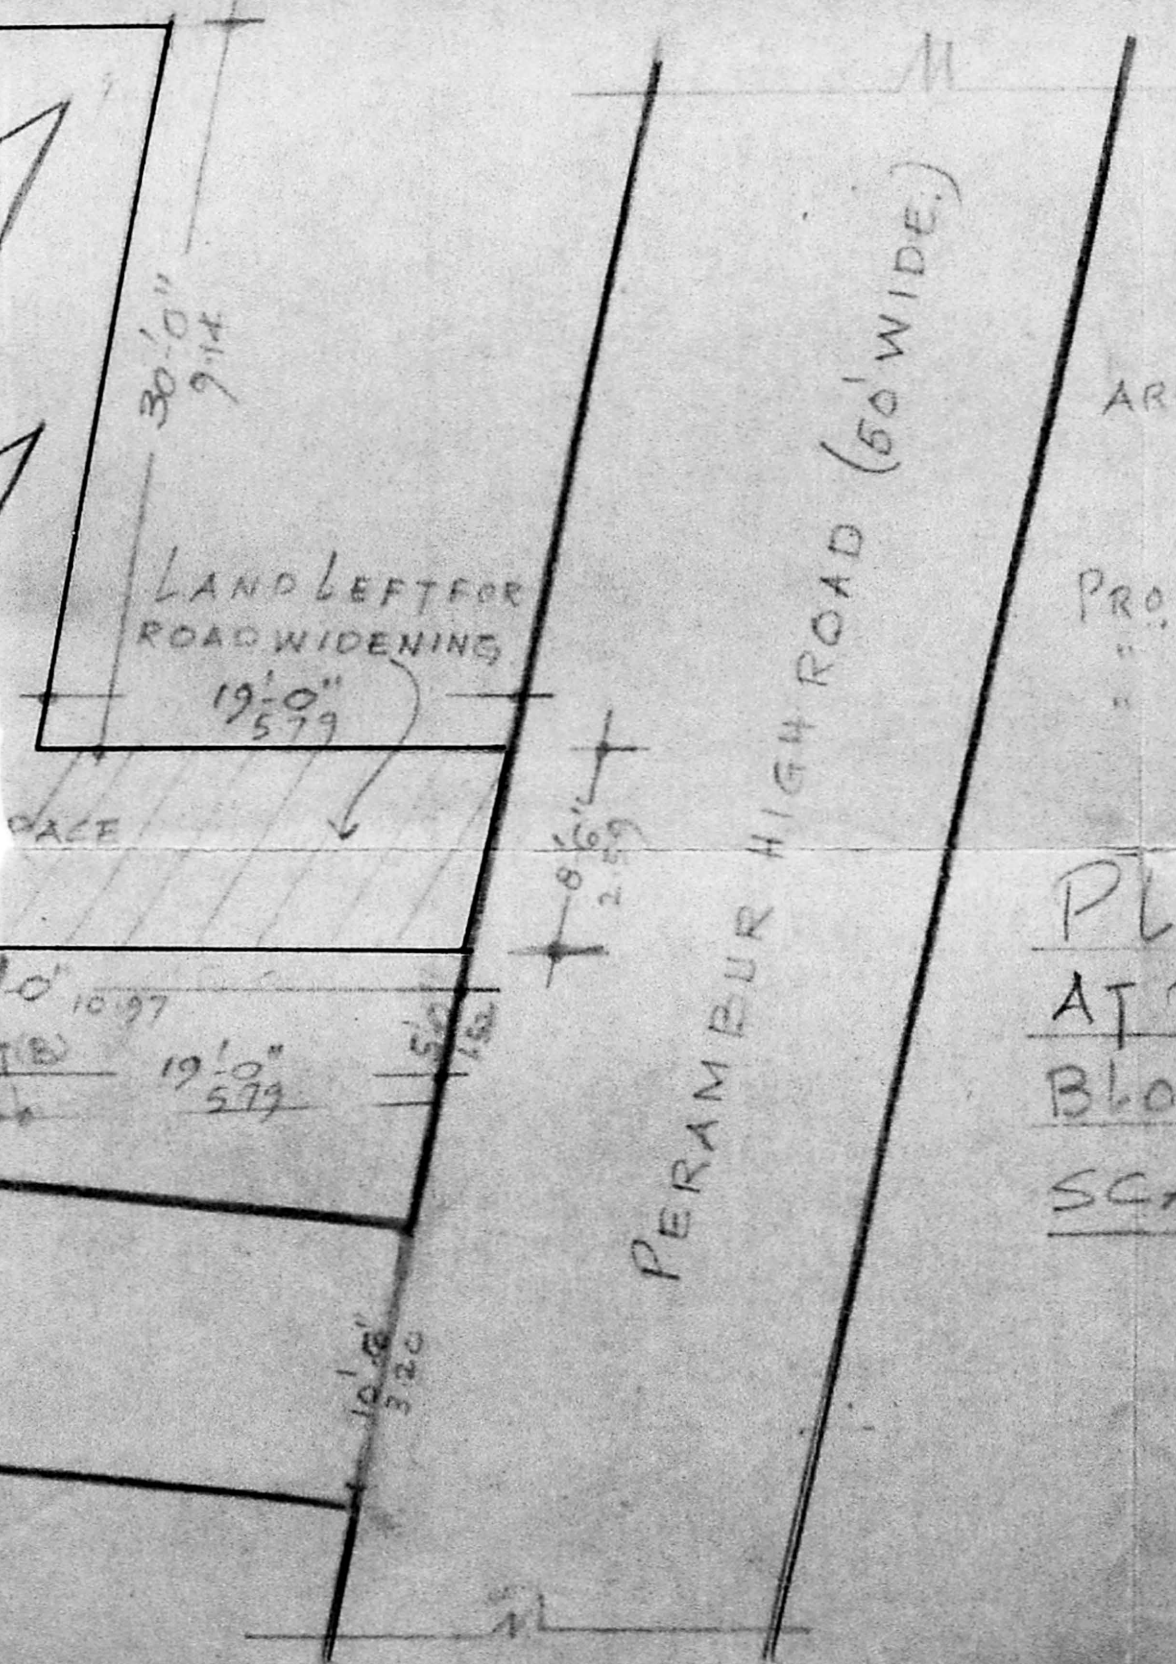 30'-0"
9.14
LAND LEFT FOR
ROAD WIDENING
19'-0"
579
PACE
8'-6"
2.59
10.97
19'-0"
579
5'-0"
1.52
10'-6"
3.20
PERAMBUR HIGH ROAD (50' WIDE.)
AR
PRO
"
"
PL
AT
BLO
SCA